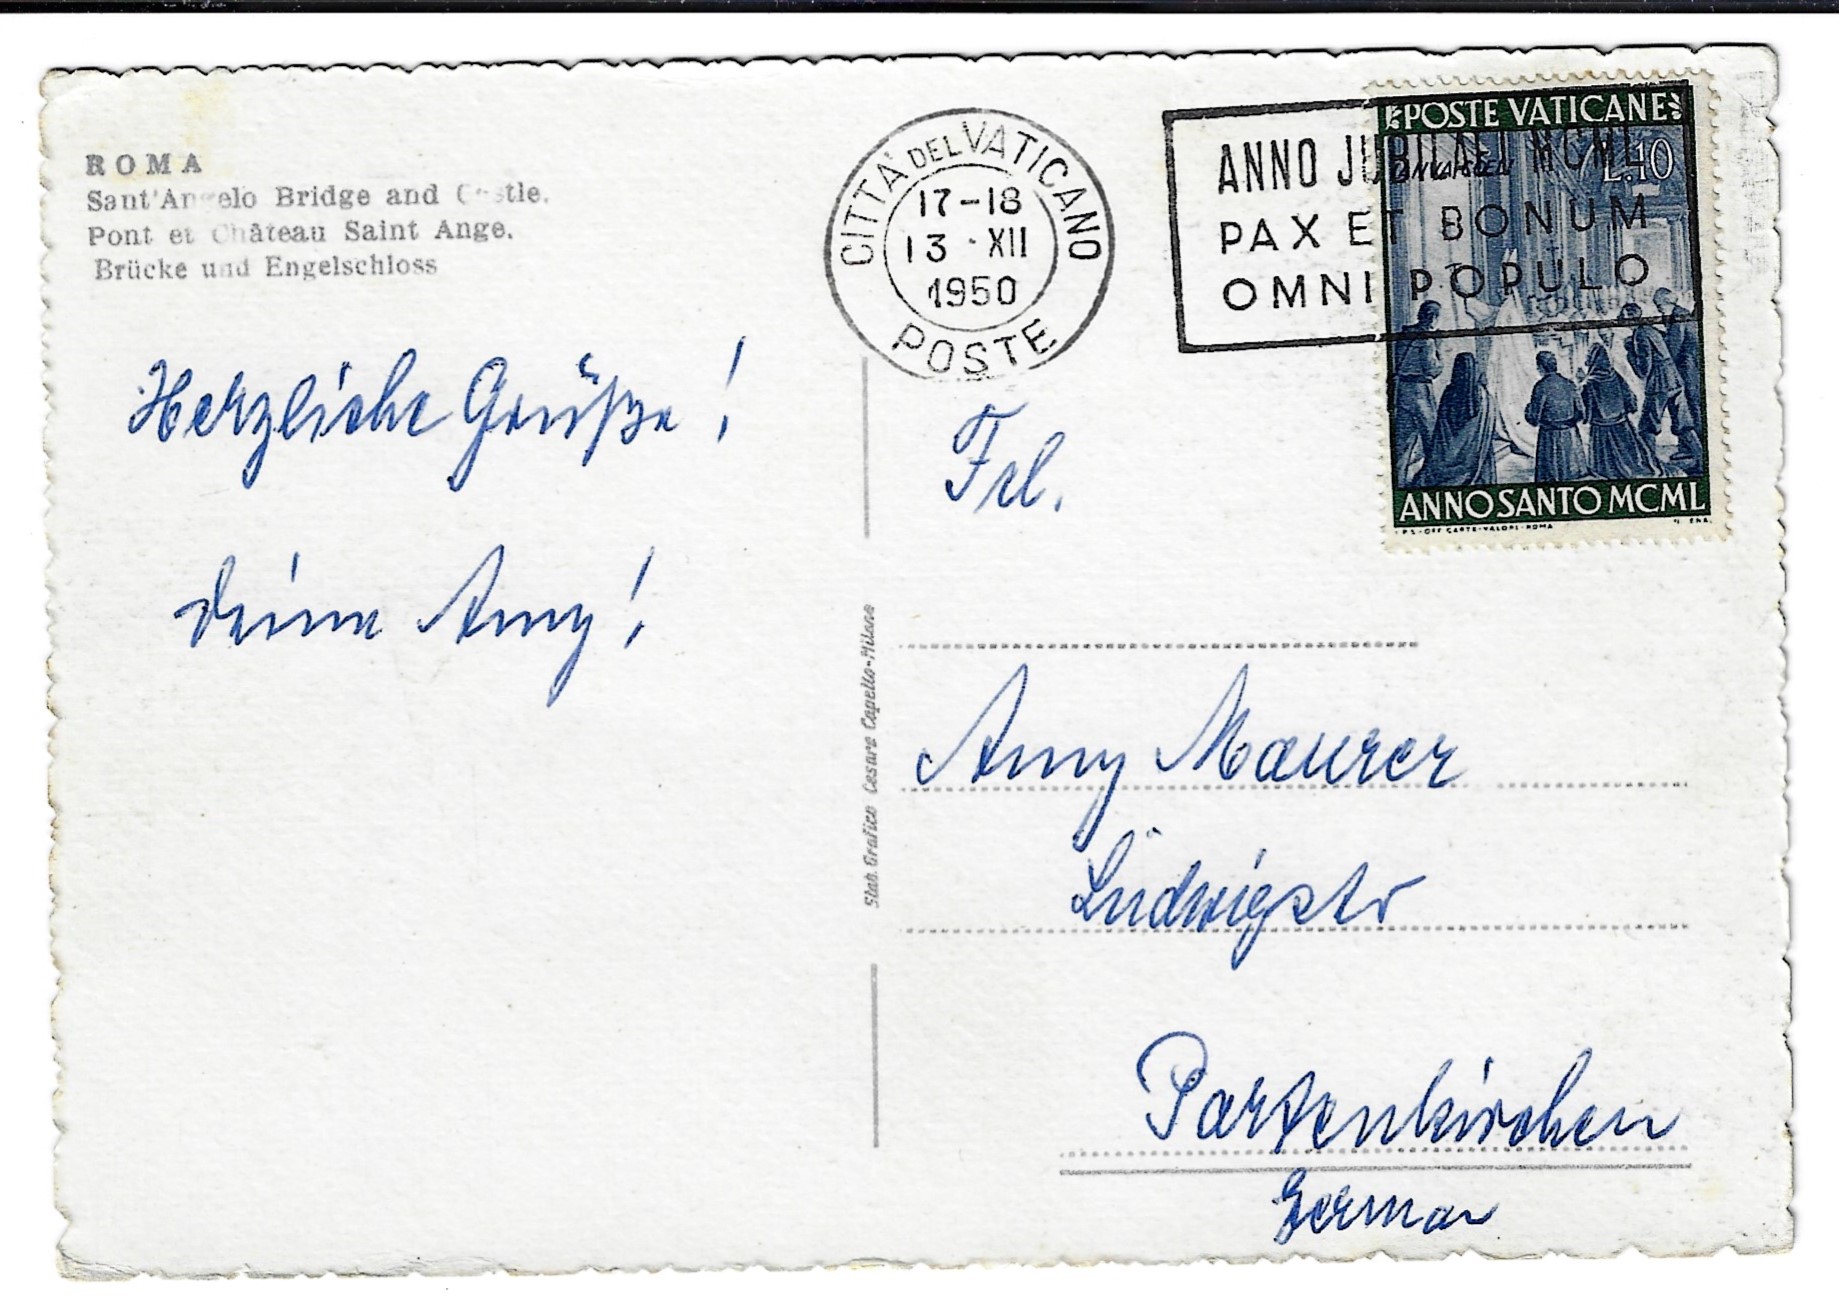 ROMA
Sant'Angelo Bridge and Castle.
Pont et Château Saint Ange.
Brücke und Engelschloss
Herzliche Grüße!
Deine Amy!
CITTÀ DEL VATICANO
17-18
13 · XII
1950
POSTE
ANNO JUBILAEI MCML
PAX ET BONUM
OMNI POPULO
POSTE VATICANE
L.10
ANNO SANTO MCML
Stab. Grafico Cesare Capello-Milano
Frl.
Amy Maurer
Ludwigstr
Partenkirchen